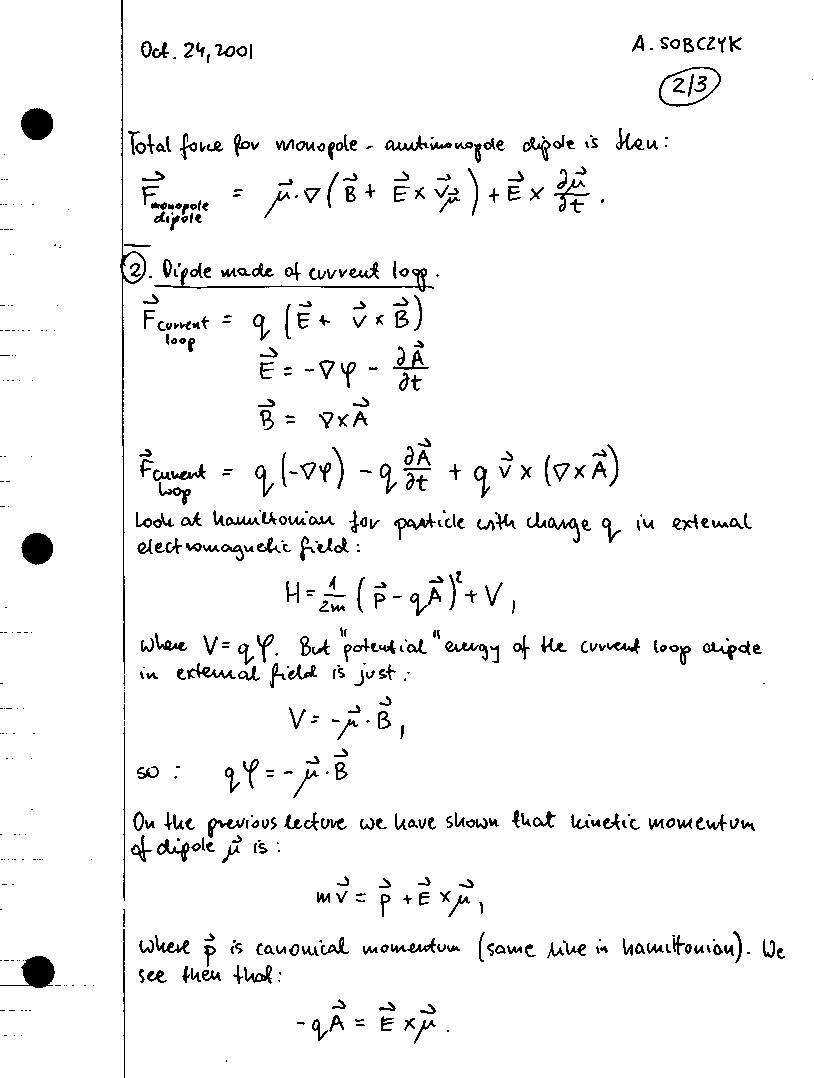 Oct. 24, 2001
A. SOBCZYK
2/3
Total force for monopole - antimonopole dipole is then:
F⃗ monopole dipole = μ⃗·∇(B⃗ + E⃗ × v⃗_μ⃗) + E⃗ × ∂μ⃗/∂t .
②. Dipole made of current loop.
F⃗ current loop = q (E⃗ + v⃗ × B⃗)
E⃗ = -∇φ - ∂A⃗/∂t
B⃗ = ∇×A⃗
F⃗ current loop = q(-∇φ) - q ∂A⃗/∂t + q v⃗ × (∇×A⃗)
Look at hamiltonian for particle with charge q in external
electromagnetic field:
H = 1/2m (p⃗ - qA⃗)² + V ,
where V = qφ. But "potential" energy of the current loop dipole
in external field is just:
V = -μ⃗·B⃗ ,
so : qφ = -μ⃗·B⃗
On the previous lecture we have shown that kinetic momentum
of dipole μ⃗ is:
mv⃗ = p⃗ + E⃗ × μ⃗ ,
where p⃗ is canonical momentum (same like in hamiltonian). We
see then that:
-qA⃗ = E⃗ × μ⃗ .